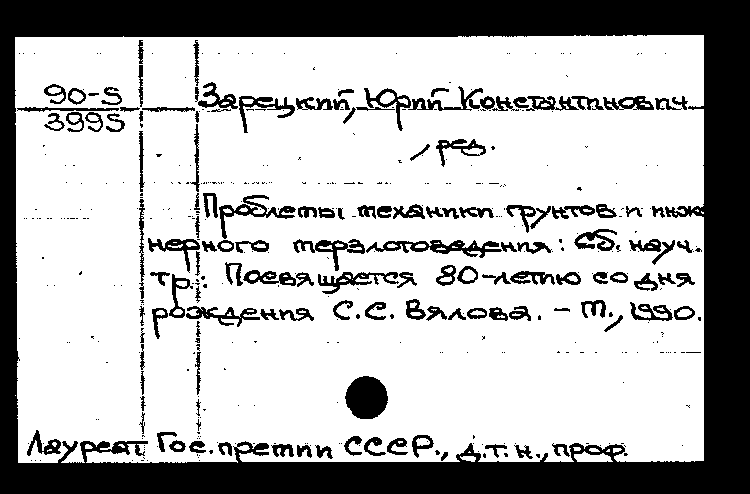 90-5
3995
Зарецкий, Юрий Константинович
, ред.
Проблемы механики грунтов и инже
нерного мерзлотоведения: Сб. науч.
тр.: Посвящается 80-летию со дня
рождения С.С. Вялова. – М., 1990.
Лауреат Гос. премии СССР., д.т.н., проф.